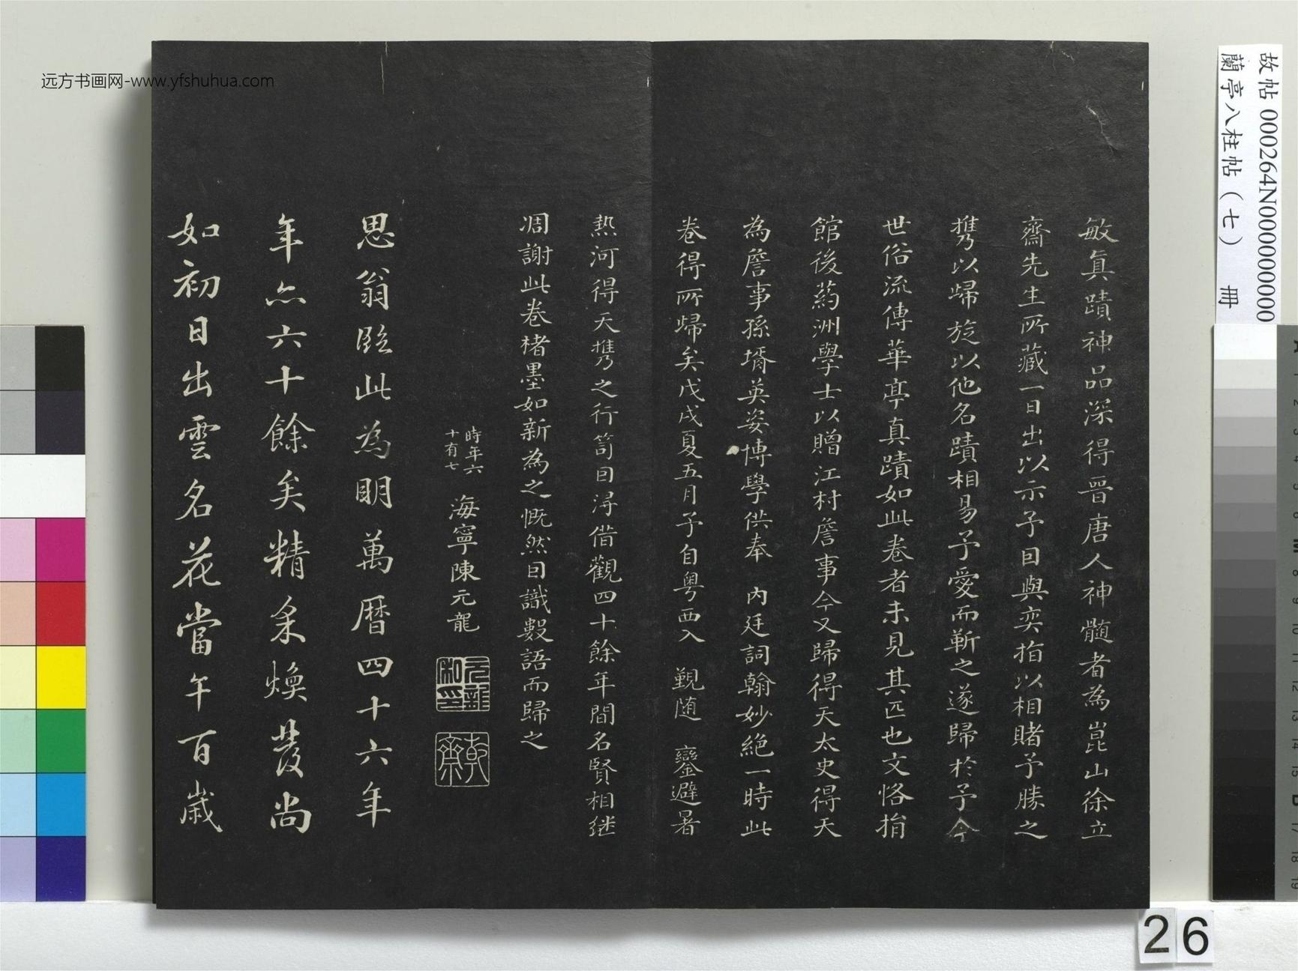 敏真蹟神品深得晉唐人神髓者為崑山徐立
齋先生所藏一日出以示予因與奕指以相賭予勝之
攜以歸旋以他名蹟相易予愛而靳之遂歸於予今
世俗流傳華亭真蹟如此卷者未見其匹也文恪捐
館後葯洲學士以贈江村詹事今又歸得天太史得天
為詹事孫壻英姿博學供奉 內廷詞翰妙絕一時此
卷得所歸矣戊戌夏五月予自粵西入 覲随 鑾避暑
熱河得天攜之行笥因得借觀四十餘年間名賢相继
凋謝此卷楮墨如新為之慨然因識數語而歸之
時年六
十有七
海寧陳元龍
元龍
私印
乾
齋
思翁臨此為明萬曆四十六年
年亦六十餘矣精采煥發尚
如初日出雲名花當午百歲
故帖 000264N000000000
蘭亭八柱帖（七） 冊
远方书画网-www.yfshuhua.com
26